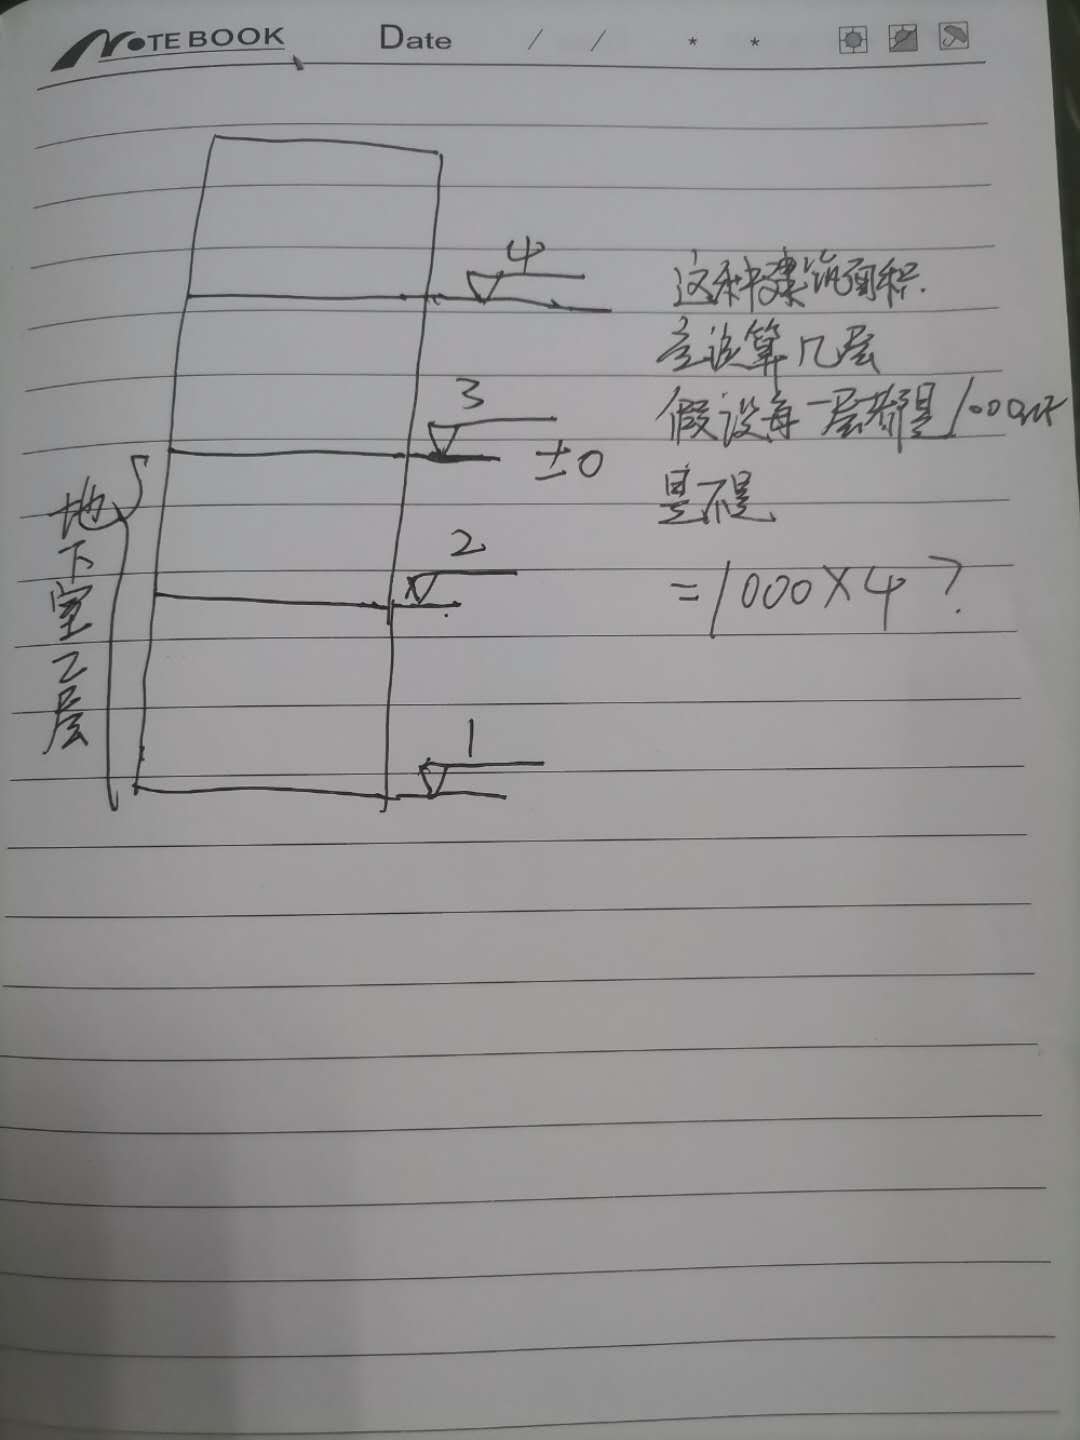 NOTEBOOK
Date / / * *
4
3
±0
2
1
地下室2层
这种建筑面积
应该算几层
假设每一层都是1000㎡
是不是
=1000×4?